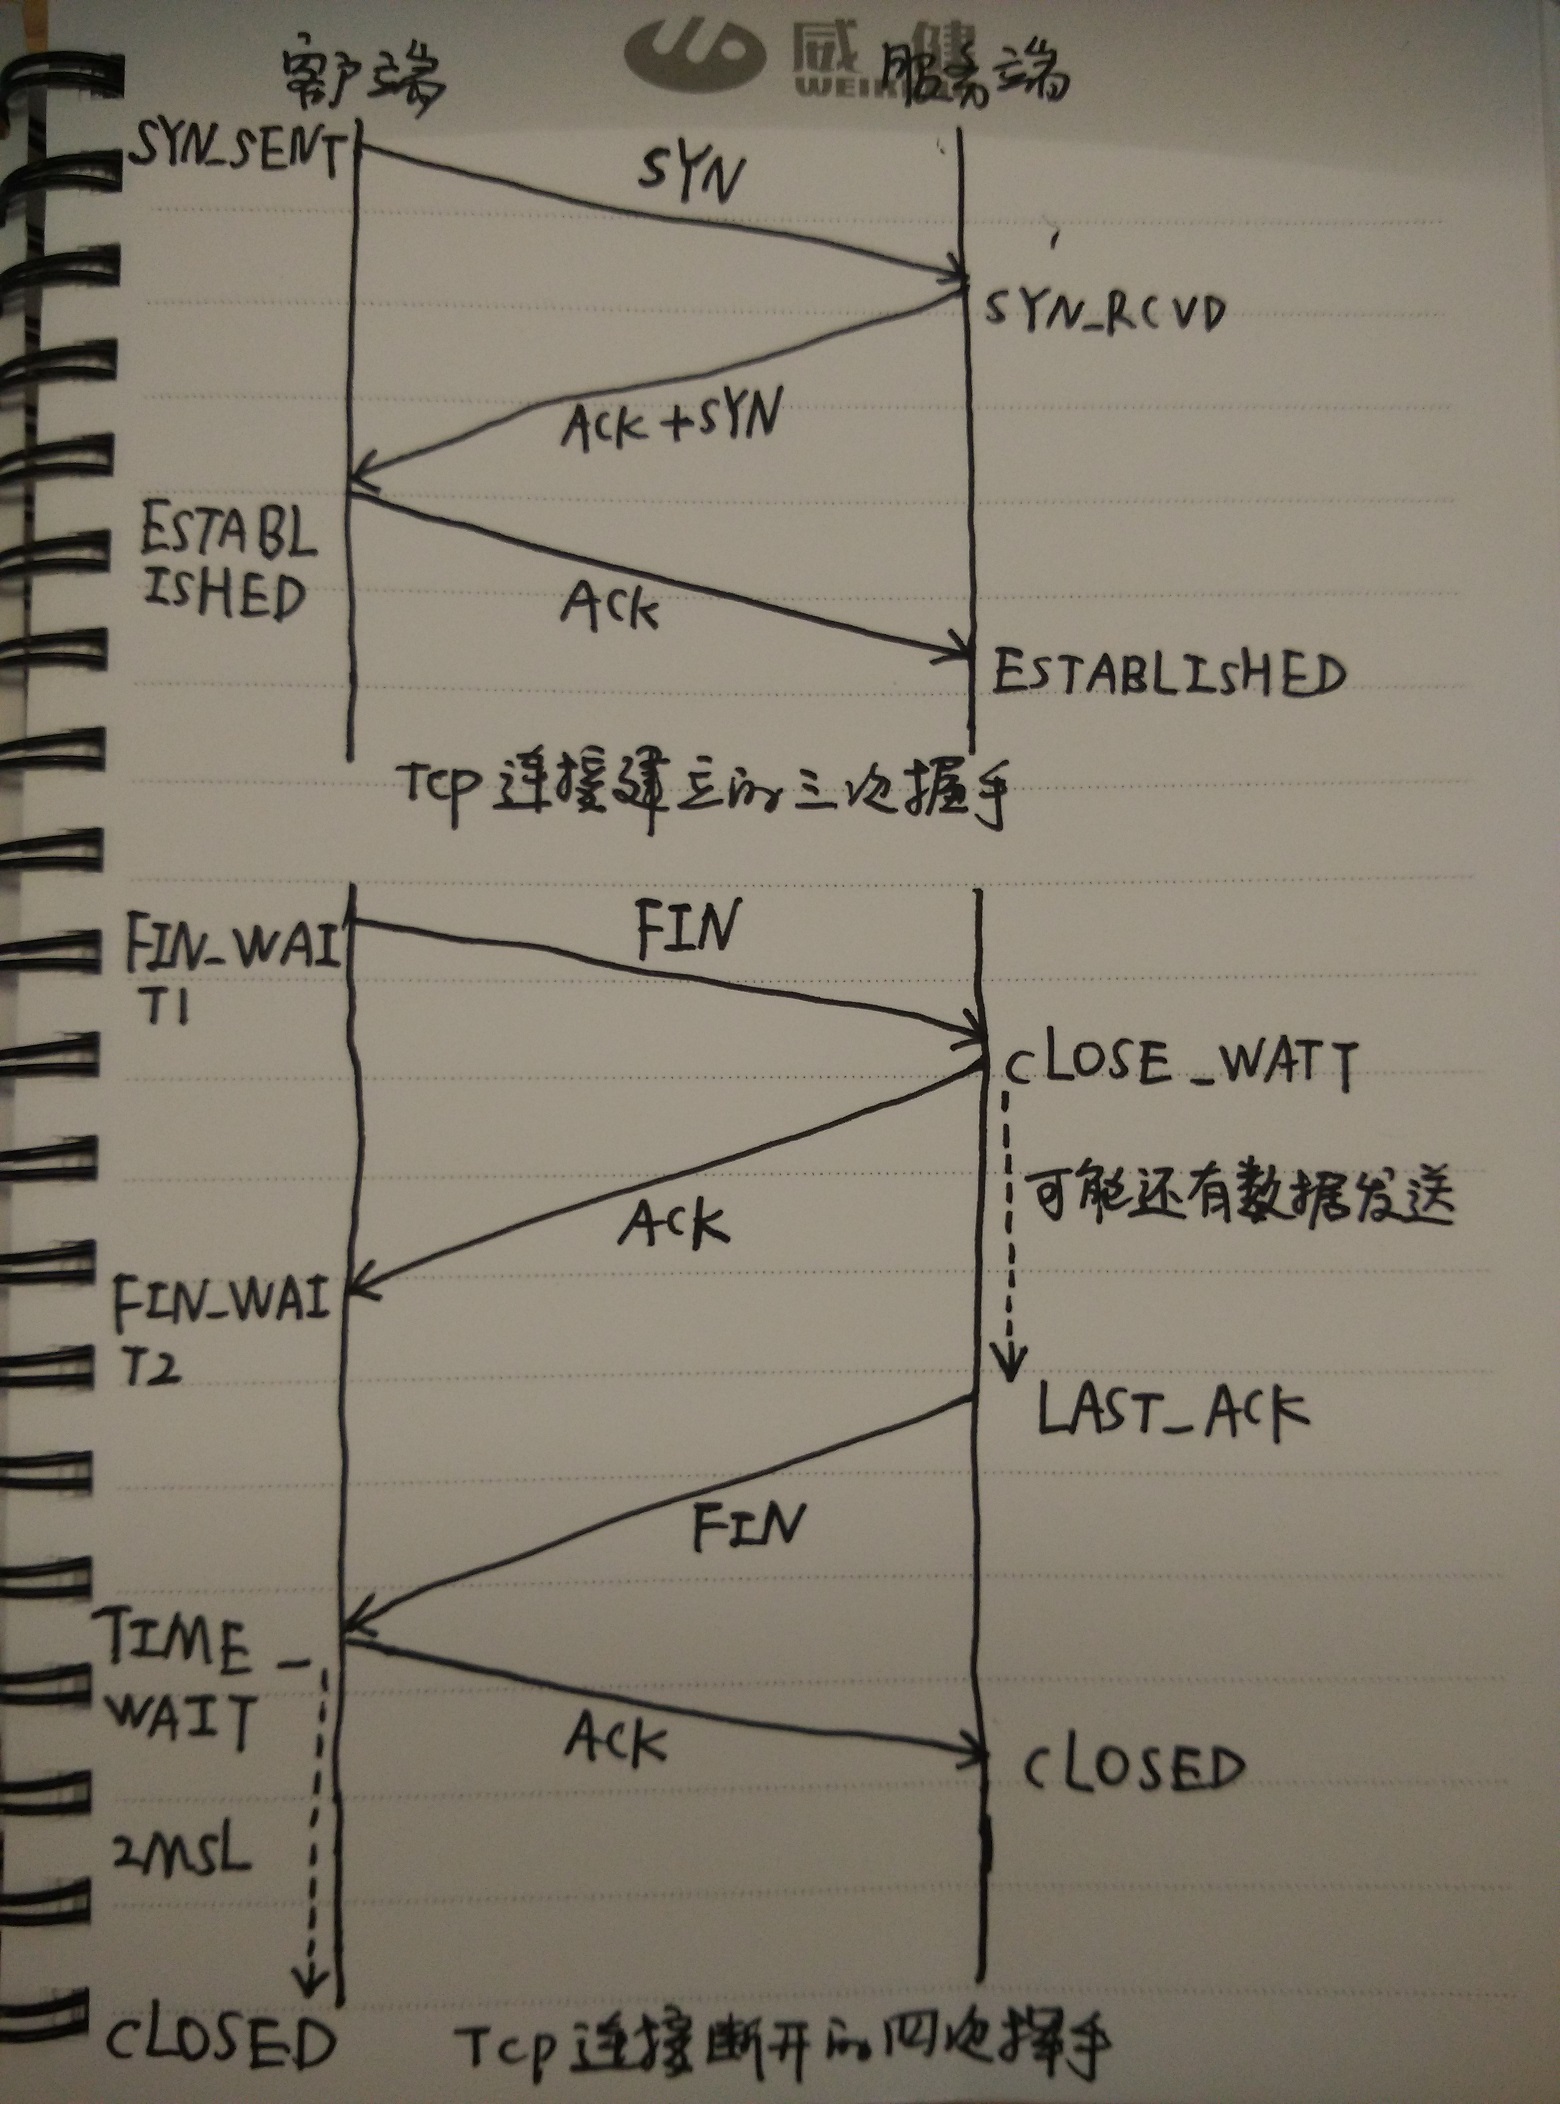 客户端
服务端
威健
SYN_SENT
SYN
SYN_RCVD
ACK+SYN
ESTABL
ISHED
ACK
ESTABLISHED
TCP连接建立的三次握手
FIN_WAI
T1
FIN
CLOSE_WAIT
可能还有数据发送
ACK
FIN_WAI
T2
LAST_ACK
FIN
TIME_
WAIT
ACK
CLOSED
2MSL
CLOSED
TCP连接断开的四次挥手